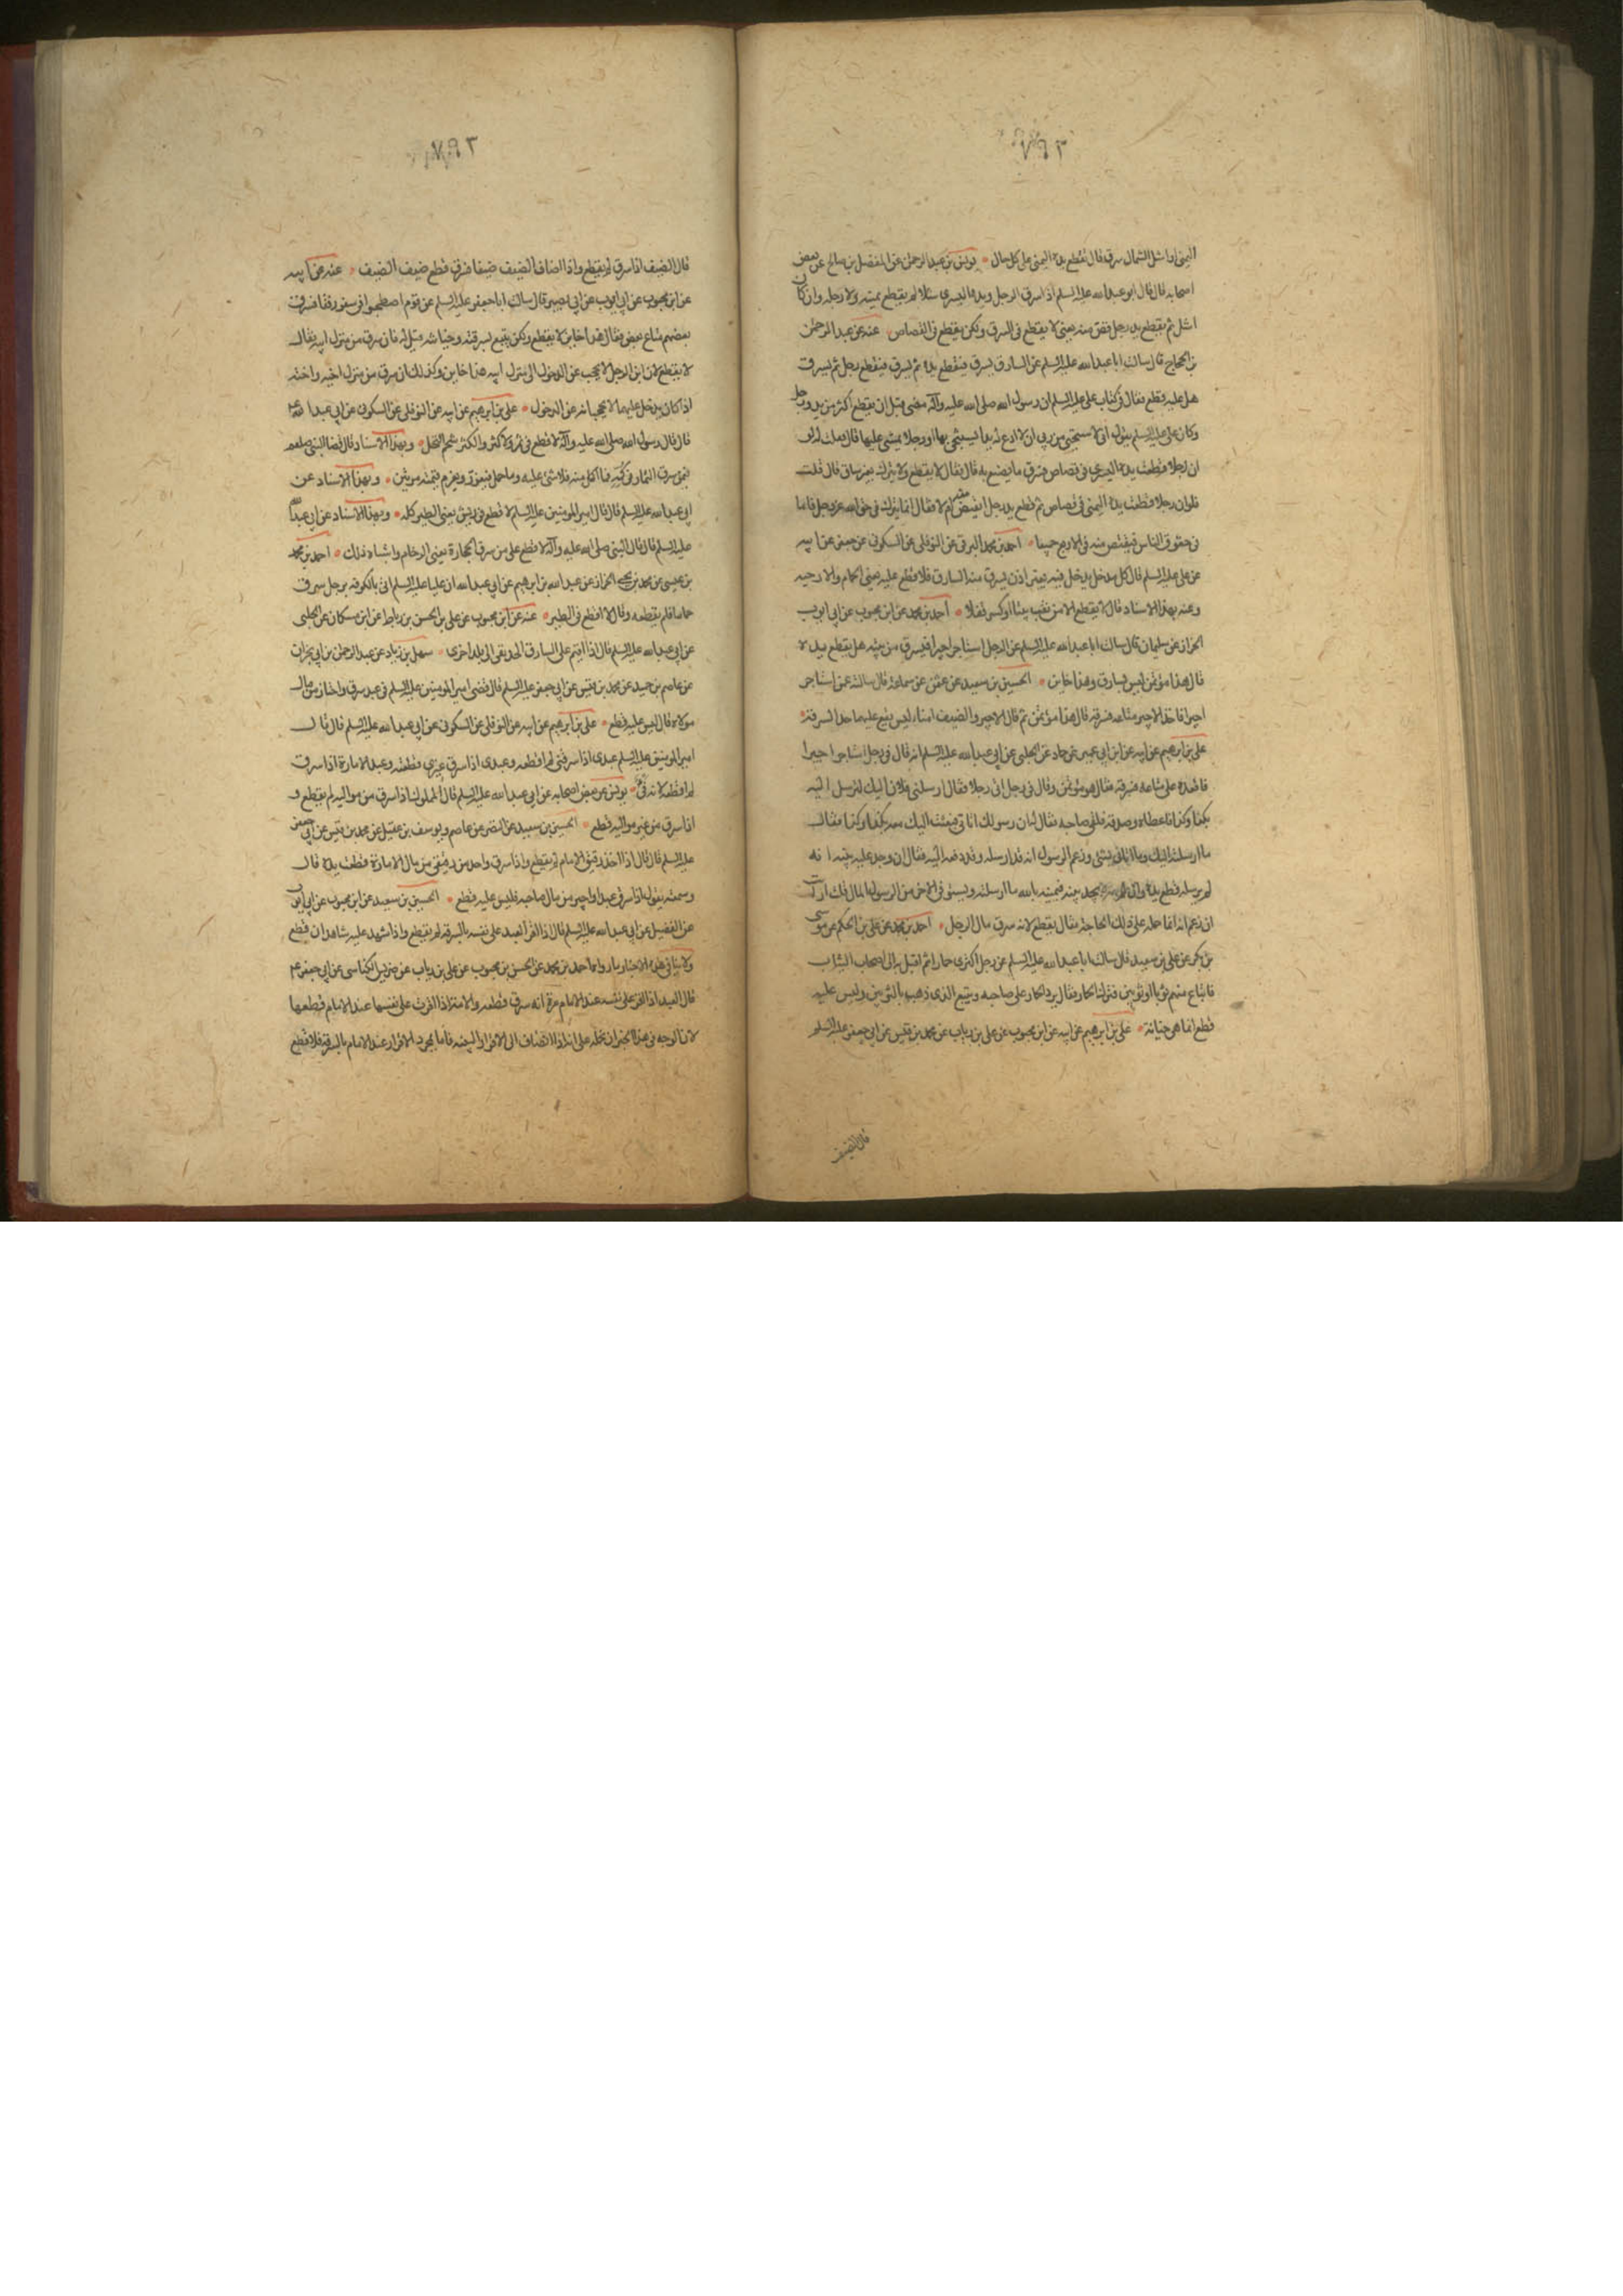 اليمنى او اشل الشمال سرق قال تقطع يده اليمنى على كل حال يونس بن عبد الرحمن عن المفضل بن صالح عن بعض
اصحابه قال قال ابو عبد الله عليه السلم اذا سرق الرجل ويده اليسرى شلاء لم يقطع يمينه ولا رجله وان كان
اشل ثم يقطع يد رجل قص منه يعني لا يقطع في السرق ولكن يقطع في القصاص عنه عن عبد الرحمن
بن الحجاج قال سالت ابا عبد الله عليه السلم عن السارق يسرق فيقطع يده ثم يسرق فيقطع رجله ثم يسرق
هل عليه قطع فقال في كتاب علي عليه السلم ان رسول الله صلى الله عليه وآله مضى قبل ان يقطع اكثر من يد ورجل
وكان علي عليه السلم يقول اني لاستحيي من ربي ان لا ادع له يدا يستنجي بها او رجلا يمشي عليها قال فقلت له لو
ان رجلا قطعت يده اليسرى في قصاص فسرق ما يصنع به قال فقال لا يقطع ولا يترك بغير ساق قال قلت
فلو ان رجلا قطعت يده اليمنى في قصاص ثم قطع يد رجل ايقتص منه ام لا فقال انما يترك في حق الله عز وجل فاما
في حقوق الناس فيقتص منه في الاربع جميعا احمد بن محمد البرقي عن النوفلي عن السكوني عن جعفر عن ابيه
عن علي عليه السلم قال كل مدخل يدخل فيه بغير اذن يسرق منه السارق فلا قطع عليه يعني الحمام والارحيه
وعنه بهذا الاسناد قال لا يقطع الا من نقب بيتا او كسر قفلا احمد بن محمد عن ابن محبوب عن ابي ايوب
الخزاز عن سليمان قال سالت ابا عبد الله عليه السلم عن الرجل استاجر اجيرا فيسرق من بيته هل يقطع يده
قال هذا مؤتمن ليس بسارق وهذا خاين الحسين بن سعيد عن عثمن عن سماعة قال سالته عمن استاجر
اجيرا فاخذ الاجير متاعه فسرقه قال هذا مؤتمن ثم قال الاجير والضيف امناء ليس يقع عليهما حد السرقة
علي بن ابرهيم عن ابيه عن ابن ابي عمير عن حماد عن الحلبي عن ابي عبد الله عليه السلم انه قال في رجل استاجر اجيرا
فاقعده على متاعه فسرقه فقال هو مؤتمن وقال في رجل اتى رجلا فقال ارسلني فلان اليك لترسل اليه
بكذا وكذا فاعطاه وصدقه فلقى صاحبه فقال له ان رسولك اتاني فبعثت اليك معه بكذا وكذا فقال
ما ارسلته اليك وما اتاني بشئ وزعم الرسول انه قد ارسله وقد دفعه اليه فقال ان وجد عليه بينة انه
لم يرسله قطع يده وان لم يجد بينه فيمينه بالله ما ارسلته ويستوفي الاخر من الرسول المال قلت ارايت
ان زعم انه انما حمله على ذلك الحاجة فقال يقطع لانه سرق مال الرجل احمد بن محمد عن علي بن الحكم عن موسى
بن بكر عن علي بن سعيد قال سالت ابا عبد الله عليه السلم عن رجل اكترى حمارا ثم اقبل به الى اصحاب الثياب
فابتاع منهم ثوبا او ثوبين فترك الحمار فقال يرد الحمار على صاحبه ويتبع الذي ذهب بالثوبين وليس عليه
قطع انما هي خيانة علي بن ابرهيم عن ابيه عن ابن محبوب عن علي بن رياب عن محمد بن قيس عن ابي جعفر عليه السلم
قال الضيف
قال الضيف اذا سرق لم يقطع واذا اضاف الضيف ضيفا فسرق قطع ضيف الضيف عنه عن ابيه
عن ابن محبوب عن ابي ايوب عن ابي بصير قال سالت ابا جعفر عليه السلم عن قوم اصطحبوا في سفر رفقا فسرق
بعضهم متاع بعض فقال هذا خاين لا يقطع ولكن يتبع بسرقته وخيانته قيل له فان سرق من منزل ابيه فقال
لا يقطع لان ابن الرجل لا يحجب عن الدخول الى منزل ابيه هذا خاين وكذلك ان سرق من منزل اخيه واخته
اذا كان يدخل عليهما لا يحجبانه عن الدخول علي بن ابرهيم عن ابيه عن النوفلي عن السكوني عن ابي عبد الله ع
قال قال رسول الله صلى الله عليه وآله لا قطع في ثمر ولا كثر والكثر شحم النخل وبهذا الاسناد قال قضا النبي صلعم
فيمن سرق الثمار في كمه فما اكل منه فلا شئ عليه وما حمل فيعزر ويغرم قيمته مرتين وبهذا الاسناد عن
ابي عبد الله عليه السلم قال قال امير المومنين عليه السلم لا قطع في ريش يعني الطير كله وبهذا الاسناد عن ابي عبد الله
عليه السلم قال قال النبي صلى الله عليه وآله لا قطع على من سرق الحجارة يعني الرخام واشباه ذلك احمد بن محمد
بن عيسى عن محمد بن يحيى الخزاز عن عبد الله بن ابرهيم عن ابي عبد الله ان عليا عليه السلم اتي بالكوفه برجل سرق
حماما فلم يقطعه وقال لا اقطع في الطير عنه عن ابن محبوب عن علي بن الحسن بن رباط عن ابن مسكان عن الحلبي
عن ابي عبد الله عليه السلم قال اذا اقيم على السارق الحد نفي الى بلد اخرى سهل بن زياد عن عبد الرحمن بن ابي نجران
عن عاصم بن حميد عن محمد بن قيس عن ابي جعفر عليه السلم قال قضى امير المومنين عليه السلم في عبد سرق واختان من مال
مولاه قال ليس عليه قطع علي بن ابرهيم عن ابيه عن النوفلي عن السكوني عن ابي عبد الله عليه السلم قال قال
امير المومنين عليه السلم عبدي اذا سرقني لم اقطعه وعبدي اذا سرق غيري قطعته وعبد الامارة اذا سرق
لم اقطعه لانه فئ يونس عن بعض اصحابه عن ابي عبد الله عليه السلم قال المملوك اذا سرق من مواليه لم يقطع و
اذا سرق من غير مواليه قطع الحسين بن سعيد عن النضر عن عاصم ويوسف بن عقيل عن محمد بن قيس عن ابي جعفر
عليه السلم قال قال اذا اخذ رقيق الامام لم يقطع واذا سرق واحد من رقيقي من مال الامارة قطعت يده قال
وسمعته يقول اذا سرق عبد او اجير من مال صاحبه فليس عليه قطع الحسين بن سعيد عن ابن محبوب عن ابي ايوب
عن الفضيل عن ابي عبد الله عليه السلم قال اذا اقر العبد على نفسه بالسرقة لم يقطع واذا شهد عليه شاهدان قطع
ولا ينافي هذه الاخبار ما رواه احمد بن محمد عن الحسن بن محبوب عن علي بن رياب عن ضريس الكناسي عن ابي جعفر ع
قال العبد اذا اقر على نفسه عند الامام مرة انه سرق قطعه والامة اذا اقرت على نفسها عند الامام قطعها
لان الوجه في هذا الخبر ان نحمله على انه اذا انضاف الى الاقرار البينه فاما بمجرد الاقرار عند الامام بالسرقة فلا قطع